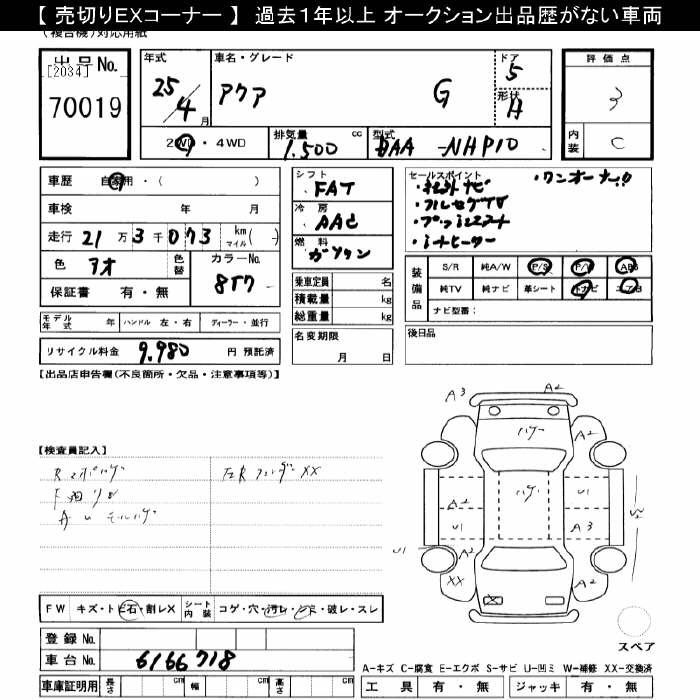 【 売切りEXコーナー 】 過去1年以上 オークション出品歴がない車両
(複合機)対応用紙
出品No.
[2034]
70019
年式 25/4月
車名・グレード
アクア G
ドア 5
形状 H
評価点
3
内装 C
2WD・4WD
排気量 cc 1.500
型式 DAA-NHP10
車歴 自家用・( )
車検 年 月
走行 21万3千073 km マイル( )
色 アオ
色替
カラーNo. 8T7
保証書 有・無
シフト FAT
冷房 AAC
燃料 ガソリン
乗車定員 名
積載量 kg
総重量 kg
セールスポイント
・ワンオーナー
・社外ナビ
・フルセグTV
・プッシュスタート
・シートヒーター
装備品
S/R 純A/W P/S P/W ABS
純TV 純ナビ 革シート
ナビ型番:
モデル年式 年 ハンドル 左・右 ディーラー・並行
名変期限 月 日
後日品
リサイクル料金 9.980 円 預託済
【出品店申告欄(不良箇所・欠品・注意事項等)】
A3
A2
ハゲ
A2
A2
【検査員記入】
XX
ハゲ
A2
U1
U1
A3
U1
A2
XX
A2
FW キズ・トビ石・割レX
シート内装 コゲ・穴・汚レ・シミ・破レ・スレ
登録No.
車台No. 6166718
スペア
A-キズ C-腐食 E-エクボ S-サビ U-凹ミ W-補修 XX-交換済
車庫証明用 長さ cm 幅 cm 高さ cm
工具 有・無 ジャッキ 有・無